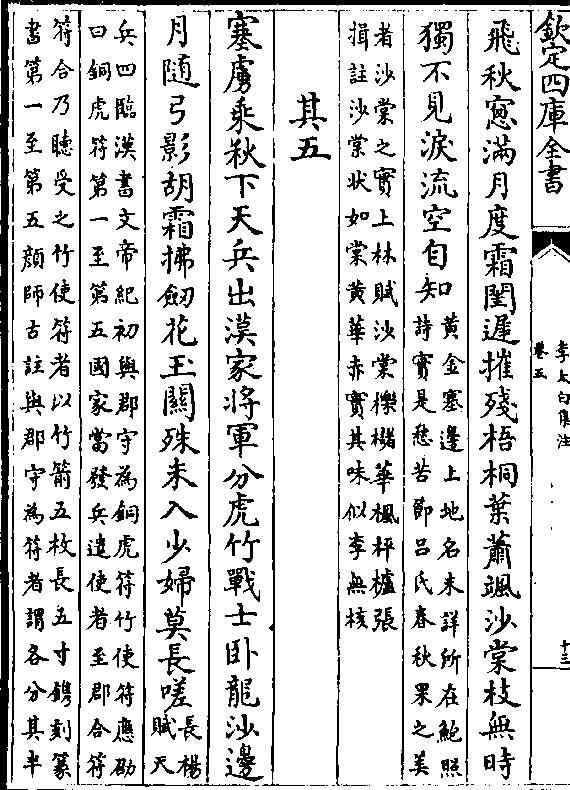 欽定四庫全書
李太白集注
卷五
十三
飛秋窻滿月度霜閨遲摧殘梧桐葉蕭颯沙棠枝無時
獨不見淚流空自知
黄金塞邊上地名未詳所在鮑照
詩實是愁苦節吕氏春秋果之美
者沙棠之實上林賦沙棠櫟櫧華楓枰櫨張
揖註沙棠状如棠黄華赤實其味似李無核
其五
塞虜乘秋下天兵出漢家將軍分虎竹戰士卧龍沙邊
月隨弓影胡霜拂劒花玉關殊未入少婦莫長嗟
長楊
賦天
兵四臨漢書文帝紀初與郡守為銅虎符竹使符應劭
曰銅虎符第一至第五國家當發兵遣使者至郡合符
符合乃聽受之竹使符者以竹箭五枚長五寸鐫刻篆
書第一至第五顔師古註與郡守為符者謂各分其半